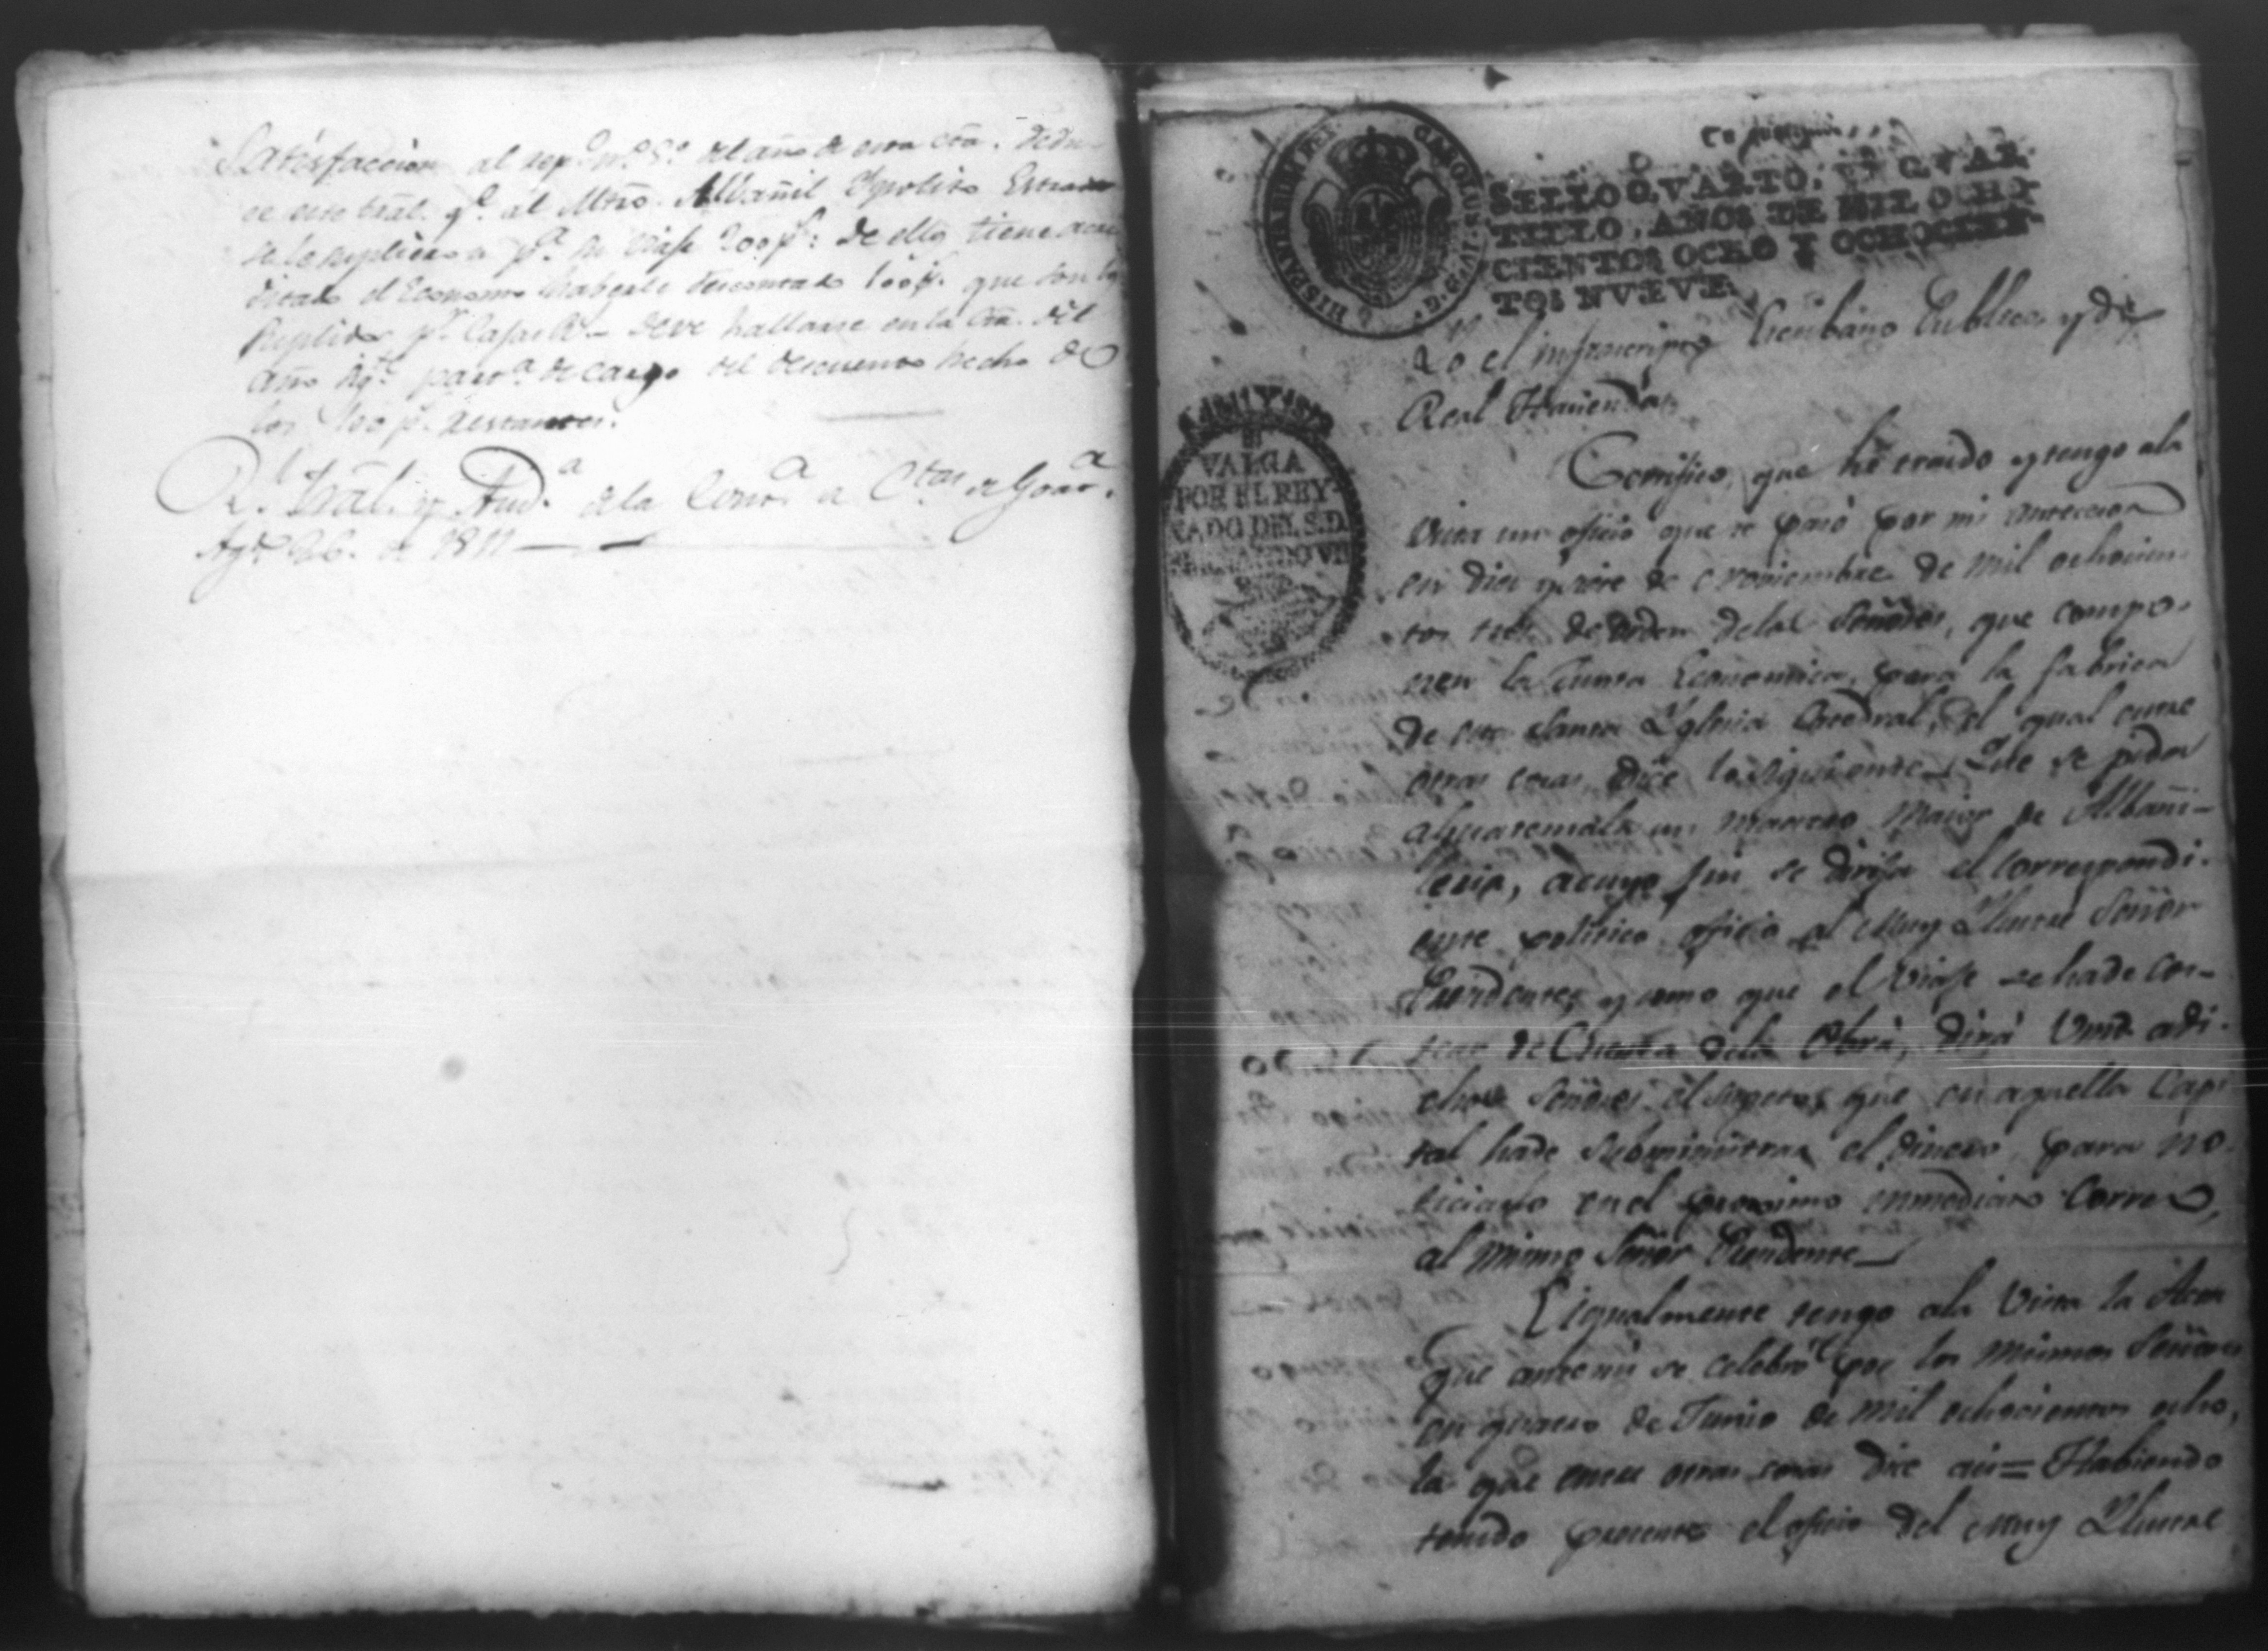 Satisfaccion al rep.º n.º 8.º del año de esta cta. dedu-
ce este tral. q.e al Mtro. Albañil Ypolito Estrada
se le suplieron p.a su viaje 200 p.s: de ellos tiene acre
ditado el Economo haberle descontado 100 p.s que son los
suplidos p.r Casaclo - deve hallarse en la cta. del
año sig.te part.a de cargo del descuento hecho de
los 100 p.s restantes.
R.l tral. y Aud.a de la Cont.a de Ctas de Goat.a
Agt.o 26. de 1811
HISPANIARUM REX CAROLUS IV D. G.
SELLO QVARTO, VN QVAR-
TILLO, AÑOS DE MIL OCHO-
CIENTOS OCHO Y OCHOCIEN-
TOS NVEVE.
1811 Y 1812
VALGA
POR EL REY-
NADO DEL S.D.
FERNANDO VII
Yo el infrascripto Escribano Publico, y de
Real Hacienda
Certifico, que hé traido y tengo ala
vista un oficio que se pasó por mi antecesor
en dies y siete de Noviembre de mil ochocien-
tos tres de orden delos Señores, que compo-
nen la Junta Economica, para la fabrica
de esta Santa Yglesia Catedral, del qual entre
otras cosas dice lo siguiente Que se pida
a Guatemala un maestro Maior de Albañi-
leria, acuyo fin se dirija el correspondi-
ente politico oficio al Muy Yllustre Señor
Presidente, y como que el viaje se ha de cos-
tear de Cuenta dela Obra, dirá Vmd. adi-
chos Señores el sugeto, que en aquella Capi
tal hade subministrar el dinero para no-
ticiarlo en el proximo inmediato Correo,
al mismo Señor Presidente
E igualmente tengo ala Vista la Acta
que ante mi se celebró por los mismos Señores
en quatro de Junio de mil ochocientos ocho,
la que entre otras cosas dice asi = Habiendo
tenido presente el oficio del Muy Yllustre